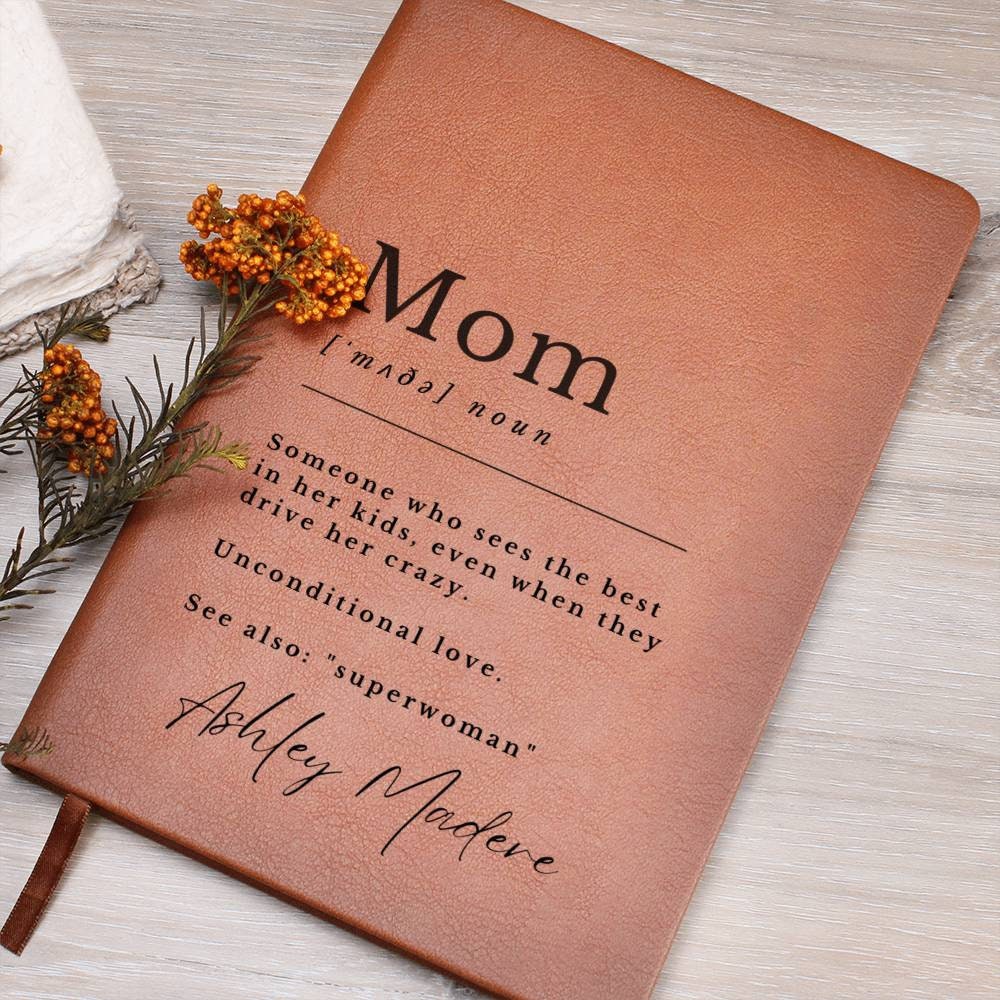 Mom
[ˈmʌðə] noun
Someone who sees the best
in her kids, even when they
drive her crazy.
Unconditional love.
See also: "superwoman"
Ashley Madere